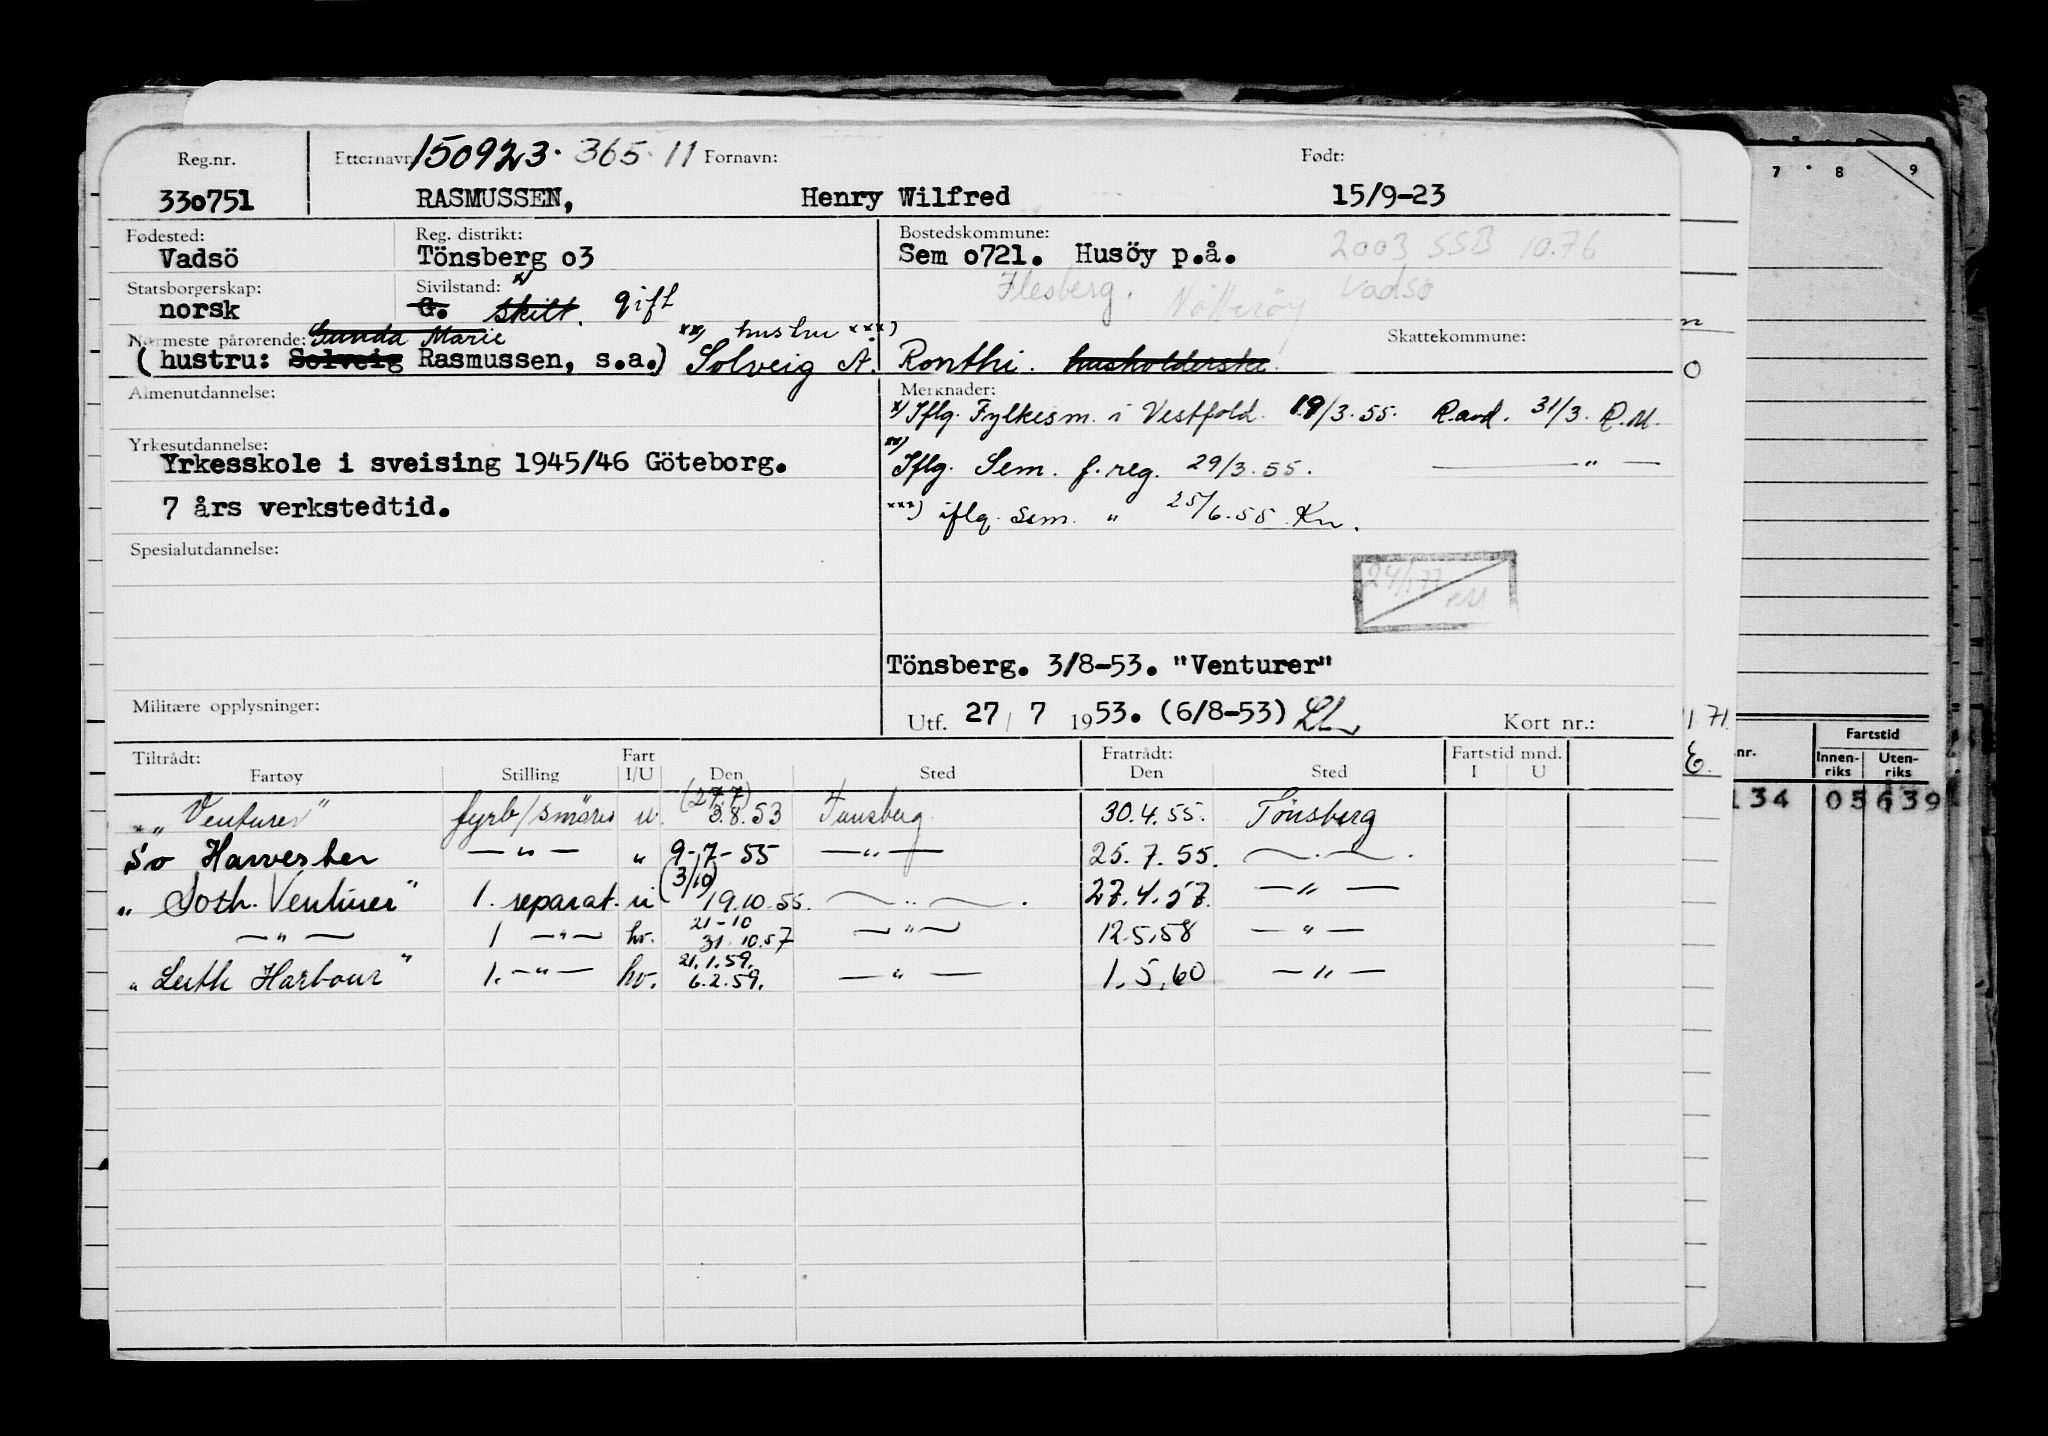 150923. 365. 11
Reg.nr. Etternavn: Fornavn: Født:
330751 RASMUSSEN, Henry Wilfred 15/9-23
Fødested: Reg. distrikt: Bostedskommune:
Vadsö Tönsberg 03 Sem 0721. Husöy p.å. 2003 SSB 10.76
Flesberg. Nötteröy Vadsö
Statsborgerskap: Sivilstand: x)
norsk G. Skilt. gift
Nærmeste pårørende: Gunda Marie xx) hustru xxx) Skattekommune:
(hustru: Solveig Rasmussen, s.a.) Solveig A. Ronthi. husholderske.
Almenutdannelse: Merknader:
x) Iflg. Fylkesm. i Vestfold. 19/3.55. R.avd. 31/3. R.M.
Yrkesutdannelse:
Yrkesskole i sveising 1945/46 Göteborg. xx) Iflg. Sem. f.reg. 29/3.55. — " —
7 års verkstedtid. xxx) iflg. Sem. " 25/6.55 Kn.
Spesialutdannelse:
24/1-77
Tönsberg. 3/8-53. "Venturer"
Militære opplysninger: Utf. 27/7 1953. (6/8-53) Kort nr.:
Tiltrådt: Fart Fratrådt: Fartstid mnd.
Fartøy Stilling I/U Den Sted Den Sted I U
"Venturer" fyrb/smører u. (27.7) 3.8.53 Tønsberg 30.4.55. Tönsberg
So Harvester — " — " 9-7-55 — " — 25.7.55. — " —
" Soth. Venturer" 1. reparat. u (3/10) 19.10.55. — " — 27.4.57. — " —
— " — 1 — " — hv. 21-10 31.10.57 — " — 12.5.58 — " —
" Leith Harbour" 1. — " — hv. 21.1.59. 6.2.59. — " — 1.5.60 — " —
7 8 9
1.71.
E.
nr. Fartstid
Innen-riks Uten-riks
134 05 639